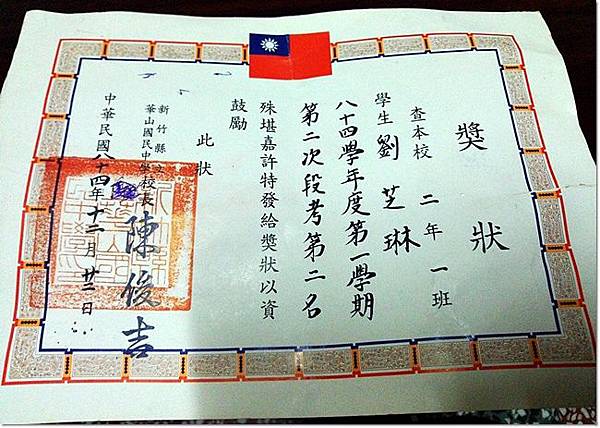 獎狀
查本校二年一班
學生劉芝琳
八十四學年度第一學期
第二次段考第二名
殊堪嘉許特發給獎狀以資
鼓勵
此狀
新竹縣立
華山國民中學校長陳俊吉
中華民國八十四年十二月廿二日